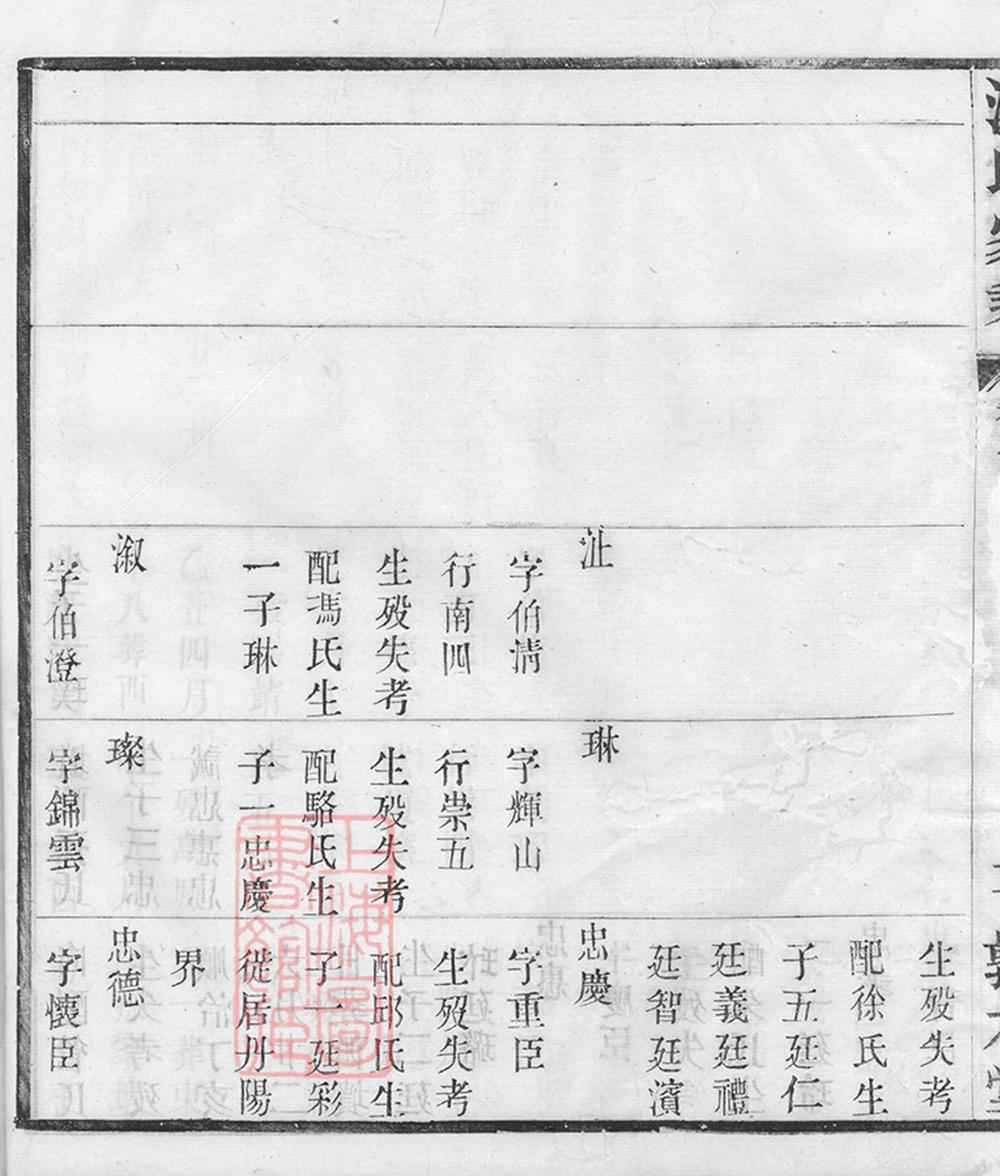 沚
字伯清
行南四
生殁失考
配馮氏生
一子琳
溆
字伯澄
琳
字輝山
行崇五
生殁失考
配駱氏生
子一忠慶
璨
字錦雲
生殁失考
配徐氏生
子五廷仁
廷義廷禮
廷智廷濱
忠慶
字重臣
生殁失考
配邱氏生
子一廷彩
徙居丹陽
界
忠德
字懷臣